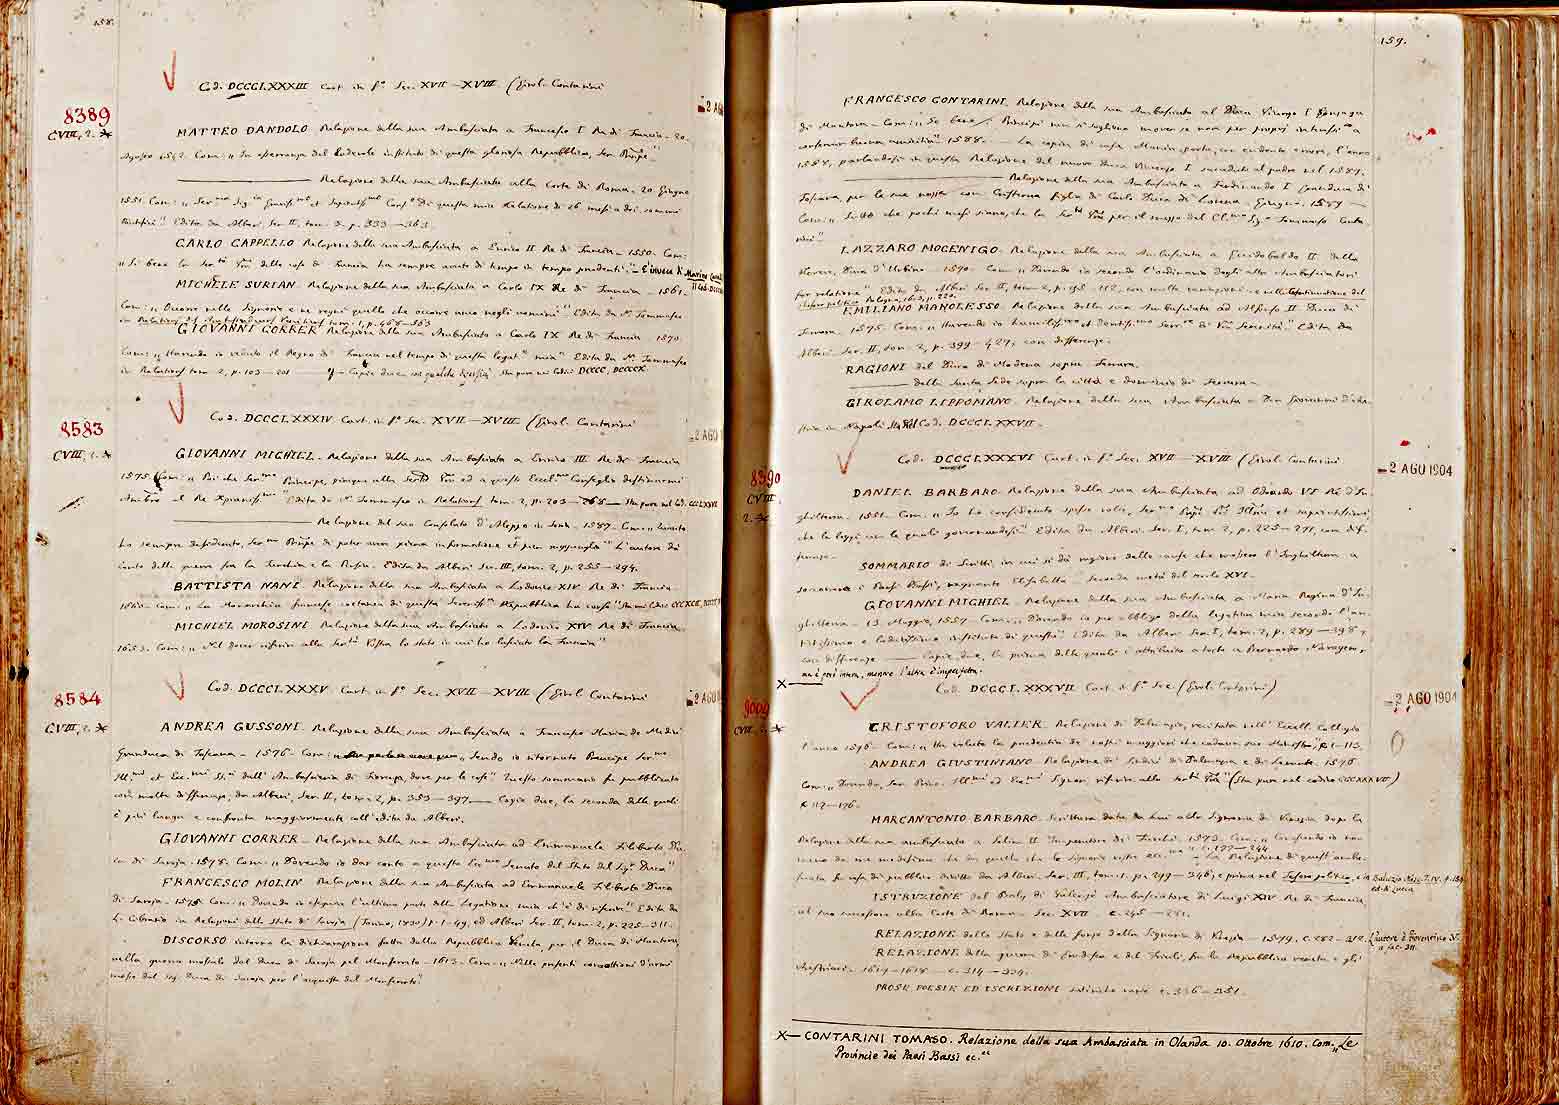 158.
Cod. DCCCLXXXIII Cart. in f.º Sec. XVII–XVIII (Girol. Contarini
8389
CVIII, 2.
2 AGO
MATTEO DANDOLO Relazione della sua Ambasciata a Francesco I Re di Francia – 20.
Agosto 1542. Com: „ In osservanza del lodevole instituto di questa gloriosa Repubblica, Ser. Prīpe"
——— Relazione della sua Ambasciata alla Corte di Roma. 20 Giugno
1551. Com: „ Ser.mo Di questa mia Relatione di 26 mesi a dei sommi
Pontefici" Edita da Alberi Ser. II, tom. 3. p. 333–363.
CARLO CAPPELLO Relazione della sua Ambasciata a Enrico II Re di Francia – 1550. Com:
„ Se bene la Ser.tà V.ra delle cose di Francia ha sempre avuto di tempo in tempo prudenti". – È invece di Marino Caval
MICHELE SURIAN. Relazione della sua Ambasciata a Carlo IX Re di Francia – 1561.
Com: „ Occorre nelle Signorie e ne regni quello che occorre anco negli uomini" Edita da N. Tommaseo
in Relations des Ambassadeurs Vénitiens tom. 1, p. 468–553
GIOVANNI CORRER Relazione della sua Ambasciata a Carlo IX Re di Francia 1570.
Com: „ Havendo io veduto il Regno di Francia nel tempo di questa legat.ne mia" Edita da N. Tommaseo
in Relations tom. 2, p. 103–201 Copie due
Cod. DCCCLXXXIV Cart. in f.º Sec. XVII–XVIII (Girol. Contarini
8583
CVIII, 2.
2 AGO
GIOVANNI MICHIEL – Relazione della sua Ambasciata a Enrico III Re di Francia
1575. Com: „ Poi che Ser.mo Principe, piaque alla Ser.tà V.ra ed a questo Eccel.mo Consiglio destinarmi
Ambre al Re Xpianiss.mo" Edita da N. Tommaseo in Relations tom. 2, p. 203–268 – Sta pure nel Cod.
——— Relazione del suo Consolato d'Aleppo in Soria. 1587. Com: „
ho sempre desiderato, Ser.mo Prīpe di poter aver piena informatione L'autore dà
conto della guerra fra la Turchia e la Persia. Edita da Alberi Ser. III, tom. 2, p. 255–294.
BATTISTA NANI. Relazione della sua Ambasciata a Lodovico XIV Re di Francia
Com: „ La Monarchia francese costanza di questa Sereniss.ma Repubblica ha
MICHIEL MOROSINI Relazione della sua Ambasciata a Lodovico XIV Re di Francia.
1653. Com: „ Nel dover riferire alla Ser.tà Vostra lo stato in cui ho lasciato la Francia"
Cod. DCCCLXXXV Cart. in f.º Sec. XVII–XVIII (Girol. Contarini
8584
CVIII, 2.
2 AGO
ANDREA GUSSONI. Relazione della sua Ambasciata a Francesco Maria de Medici
Granduca di Toscana – 1576. Com: Sendo io ritornato Principe Ser.mo
Ill.mi et Ecc.mi S.ri dall'Ambasciaria di Fiorenza, dove per le cose" Questo sommario fu pubblicato
con molte differenze, da Alberi, Ser. II, tom. 2, p. 353–397. — Copie due, la seconda delle quali
è più lunga e confronta maggiormente coll'edita da Alberi.
GIOVANNI CORRER – Relazione della sua Ambasciata ad Emmanuele Filiberto Du-
ca di Savoja. 1578. Com: „ Dovendo io dar conto a questo Ecc.mo Senato del Stato del Sig.r Duca"
FRANCESCO MOLIN Relazione della sua Ambasciata ad Emmanuele Filiberto Duca
di Savoja. 1575 Com: „ Dovendo io eseguire l'ultima parte della legatione mia ch'è di riferire" Edita da
L. Cibrario in Relazioni dello Stato di Savoja (Torino, 1830) p. 1–49, ed Alberi Ser. II, tom. 2, p. 225–311.
DISCORSO intorno la dichiarazione fatta dalla Repubblica Veneta, per il Duca di Mantova,
nella guerra mossali dal duca di Savoja pel Monferrato – 1613. Com: „ Nelle presenti commotioni d'armi
mosse dal Sig. Duca di Savoja per l'acquisto del Monferrato".
159.
FRANCESCO CONTARINI. Relazione della sua Ambasciata al Duca Vicenzo I Gonzaga
di Mantova – Com: „ Se bene i Principi non si sogliono mover se non per proprj interessi o a
conservar buona amicitia" 1588. — La copia di casa Manin porta, con evidente errore, l'anno
1558, parlandosi in questa Relazione del nuovo duca Vicenzo I succeduto al padre nel 1587.
——— Relazione della sua Ambasciata a Ferdinando I Granduca di
Toscana, per le sue nozze con Cristierna figlia di Carlo Duca di Lorena – Giugno. 1589 —
Com: „ Se bē che pochi mesi siano, che la Ser.tà V.ra per il mezzo del Cl.mo Sig.r Tommaso Conta
rini"
LAZZARO MOCENIGO. Relazione della sua Ambasciata a Guidobaldo II della
Rovere, Duca d'Urbino – 1570. Com: „ Dovendo io secondo l'ordinario degli altri Ambasciatori
far relatione" Edita da Alberi Ser. II, tom. 2, p. 95–112, con molte variazioni – e nella Continuatione del
Bologna, 1603, p. 220.
EMILIANO MANOLESSO. Relazione della sua Ambasciata ad Alfonso II Duca di
Ferrara. 1575. Com: „ Havendo io Edita da
Alberi. Ser. II, tom. 2, p. 399–427, con differenze.
RAGIONI del Duca di Modena sopra Ferrara.
——— della Santa Sede sopra la città e dominio di Ferrara –
GIROLAMO LIPPOMANO – Relazione della sua Ambasciata a Don Giovanni d'Au-
stria in Napoli Sta nel Cod. DCCCLXXVII.
Cod. DCCCLXXXVI Cart. in f.º Sec. XVII–XVIII (Girol. Contarini
8390
CVIII
2.
2 AGO 1904
DANIEL BARBARO Relazione della sua Ambasciata ad Odoardo VI Re d'In-
ghilterra. 1551. Com: „ Io ho considerato spesse volte, Ser.mo
che le leggi con le quali governandosi" Edita da Alberi. Ser. I, tom. 2, p. 225–271, con dif-
ferenze.
SOMMARIO di Scritti, in cui si dà ragione delle cause che mossero l'Inghilterra a
soccorrere i Paesi Bassi, regnante Elisabetta – Seconda metà del secolo XVI.
GIOVANNI MICHIEL. Relazione della sua Ambasciata a Maria Regina d'In-
ghilterra – 13 Maggio, 1557. Com: „ Dovendo io per obbligo della legation mia secondo l'an-
tichissimo e lodatissimo instituto di questo" Edita da Alberi Ser. I, tom. 2, p. 289–398,
con differenze — Copie due, la prima delle quali è attribuita a torto a Bernardo Navagero,
ma è però intera, mentre l'altra è imperfetta.
X—
Cod. DCCCLXXXVII Cart. in f.º Sec. (Girol. Contarini)
9009
CVII, 2.
2 AGO 1904
CRISTOFORO VALIER. Relazione di Dalmazia, recitata nell'Eccell. Collegio
l'anno 1596. Com: „ Ha voluto la prudentia de' nostri maggiori che cadaun suo Ministro" c. 1–115.
ANDREA GIUSTINIANO. Relazione di Sindici di Dalmazia e di Levante. 1576.
Com: „ Dovendo, Ser. Princ. Ill.mi ed Ecc.mi Signori riferire alla Ser.tà V.ra" (Sta pure nel codice
c. 117–176.
MARCANTONIO BARBARO – Scrittura data da lui alla Signoria di Venezia dopo la
Relazione della sua ambasciata a Selin II Imperatore dei Turchi. 1573. Com: „
c. 177–244.
– La Relazione di quest'amba-
sciata fu resa di pubblico diritto da Alberi. Ser. III, tom. 1. p. 299–346, e prima nel Tesoro politico, e in Baluzio Misc. T. IV. p. 154
ed. di Lucca
ISTRUZIONE del Baly di Valençé Ambasciatore di Luigi XIV Re di Francia,
al suo successore alla Corte di Roma. Sec. XVII. c. 245–281.
RELAZIONE dello Stato e delle forze della Signoria di Venezia – 1579. c. 282–312. L'autore è Fiorentino
a fac. 311.
RELAZIONE della guerra di Gradisca e del Friuli, fra la Repubblica veneta e gli
Arciducali – 1617–1618 — c. 314–334.
PROSE, POESIE ED ISCRIZIONI satiriche varie c. 336–351.
X— CONTARINI TOMASO. Relazione della sua Ambasciata in Olanda 10. Ottobre 1610. Com. „ Le
Provincie dei Paesi Bassi ec."